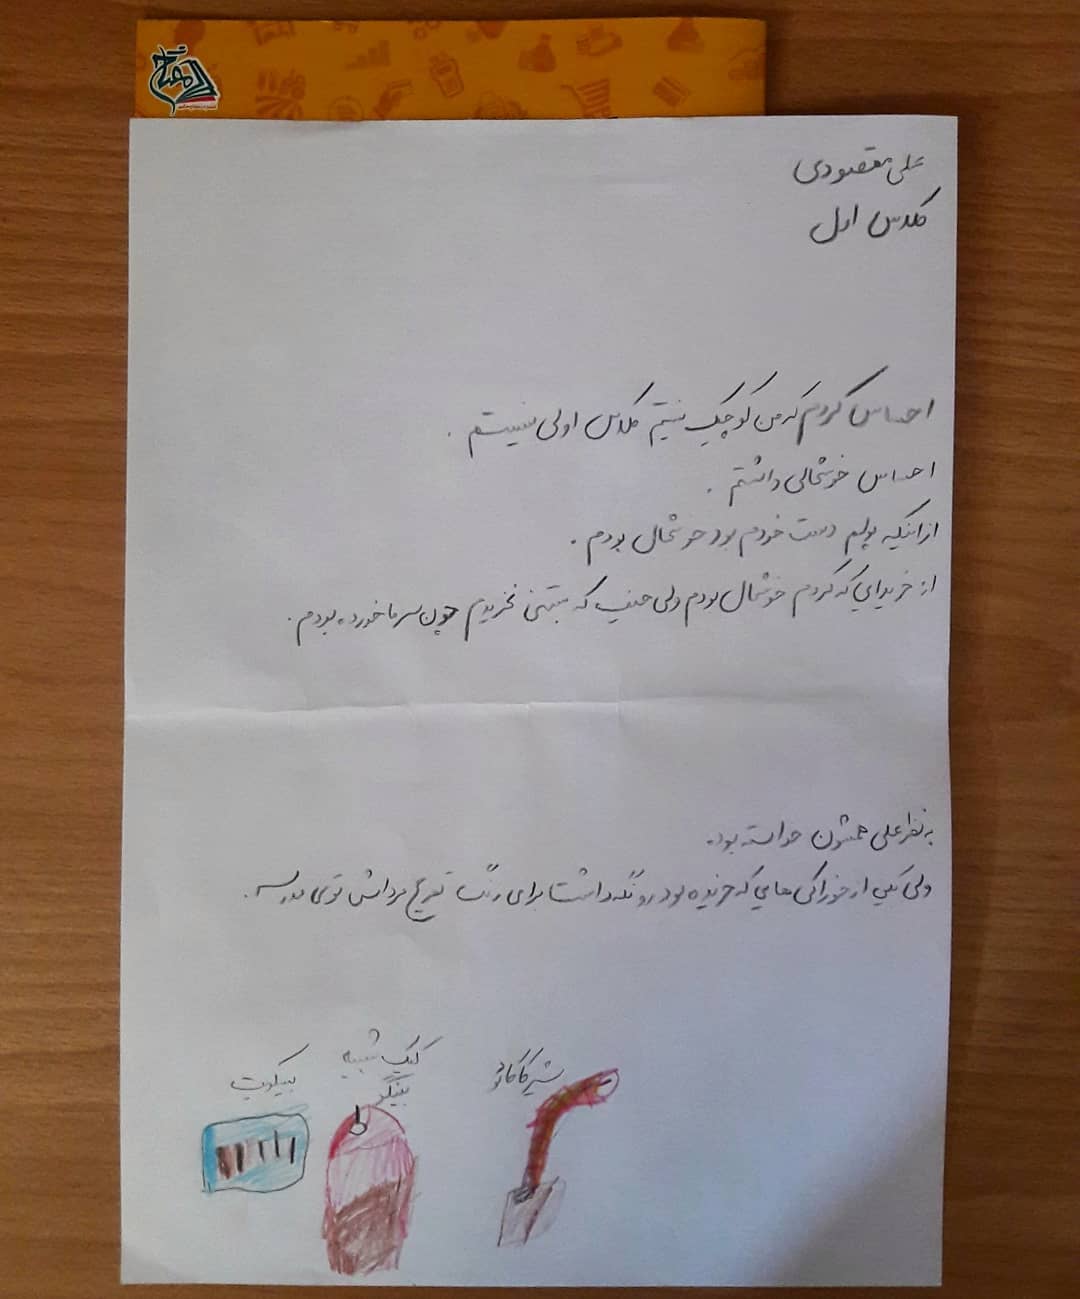 علی مقصودی
کلاس اول
احساس کردم که من کوچیک نیستم کلاس اولی نیستم .
احساس خوشحالی داشتم .
از اینکه پولم دست خودم بود خوشحال بودم .
از خریدایی که کردم خوشحال بودم ولی حیف که بستنی نخریدم چون سرما خورده بودم .
به نظر علی همشون خواسته بود.
ولی یکی از خوراکی هایی که خریده بود رو نگه داشت برای زنگ تفریح فرداش توی مدرسه .
شیرکاکائو
کیک شبیه
بینگر
بیسکویت